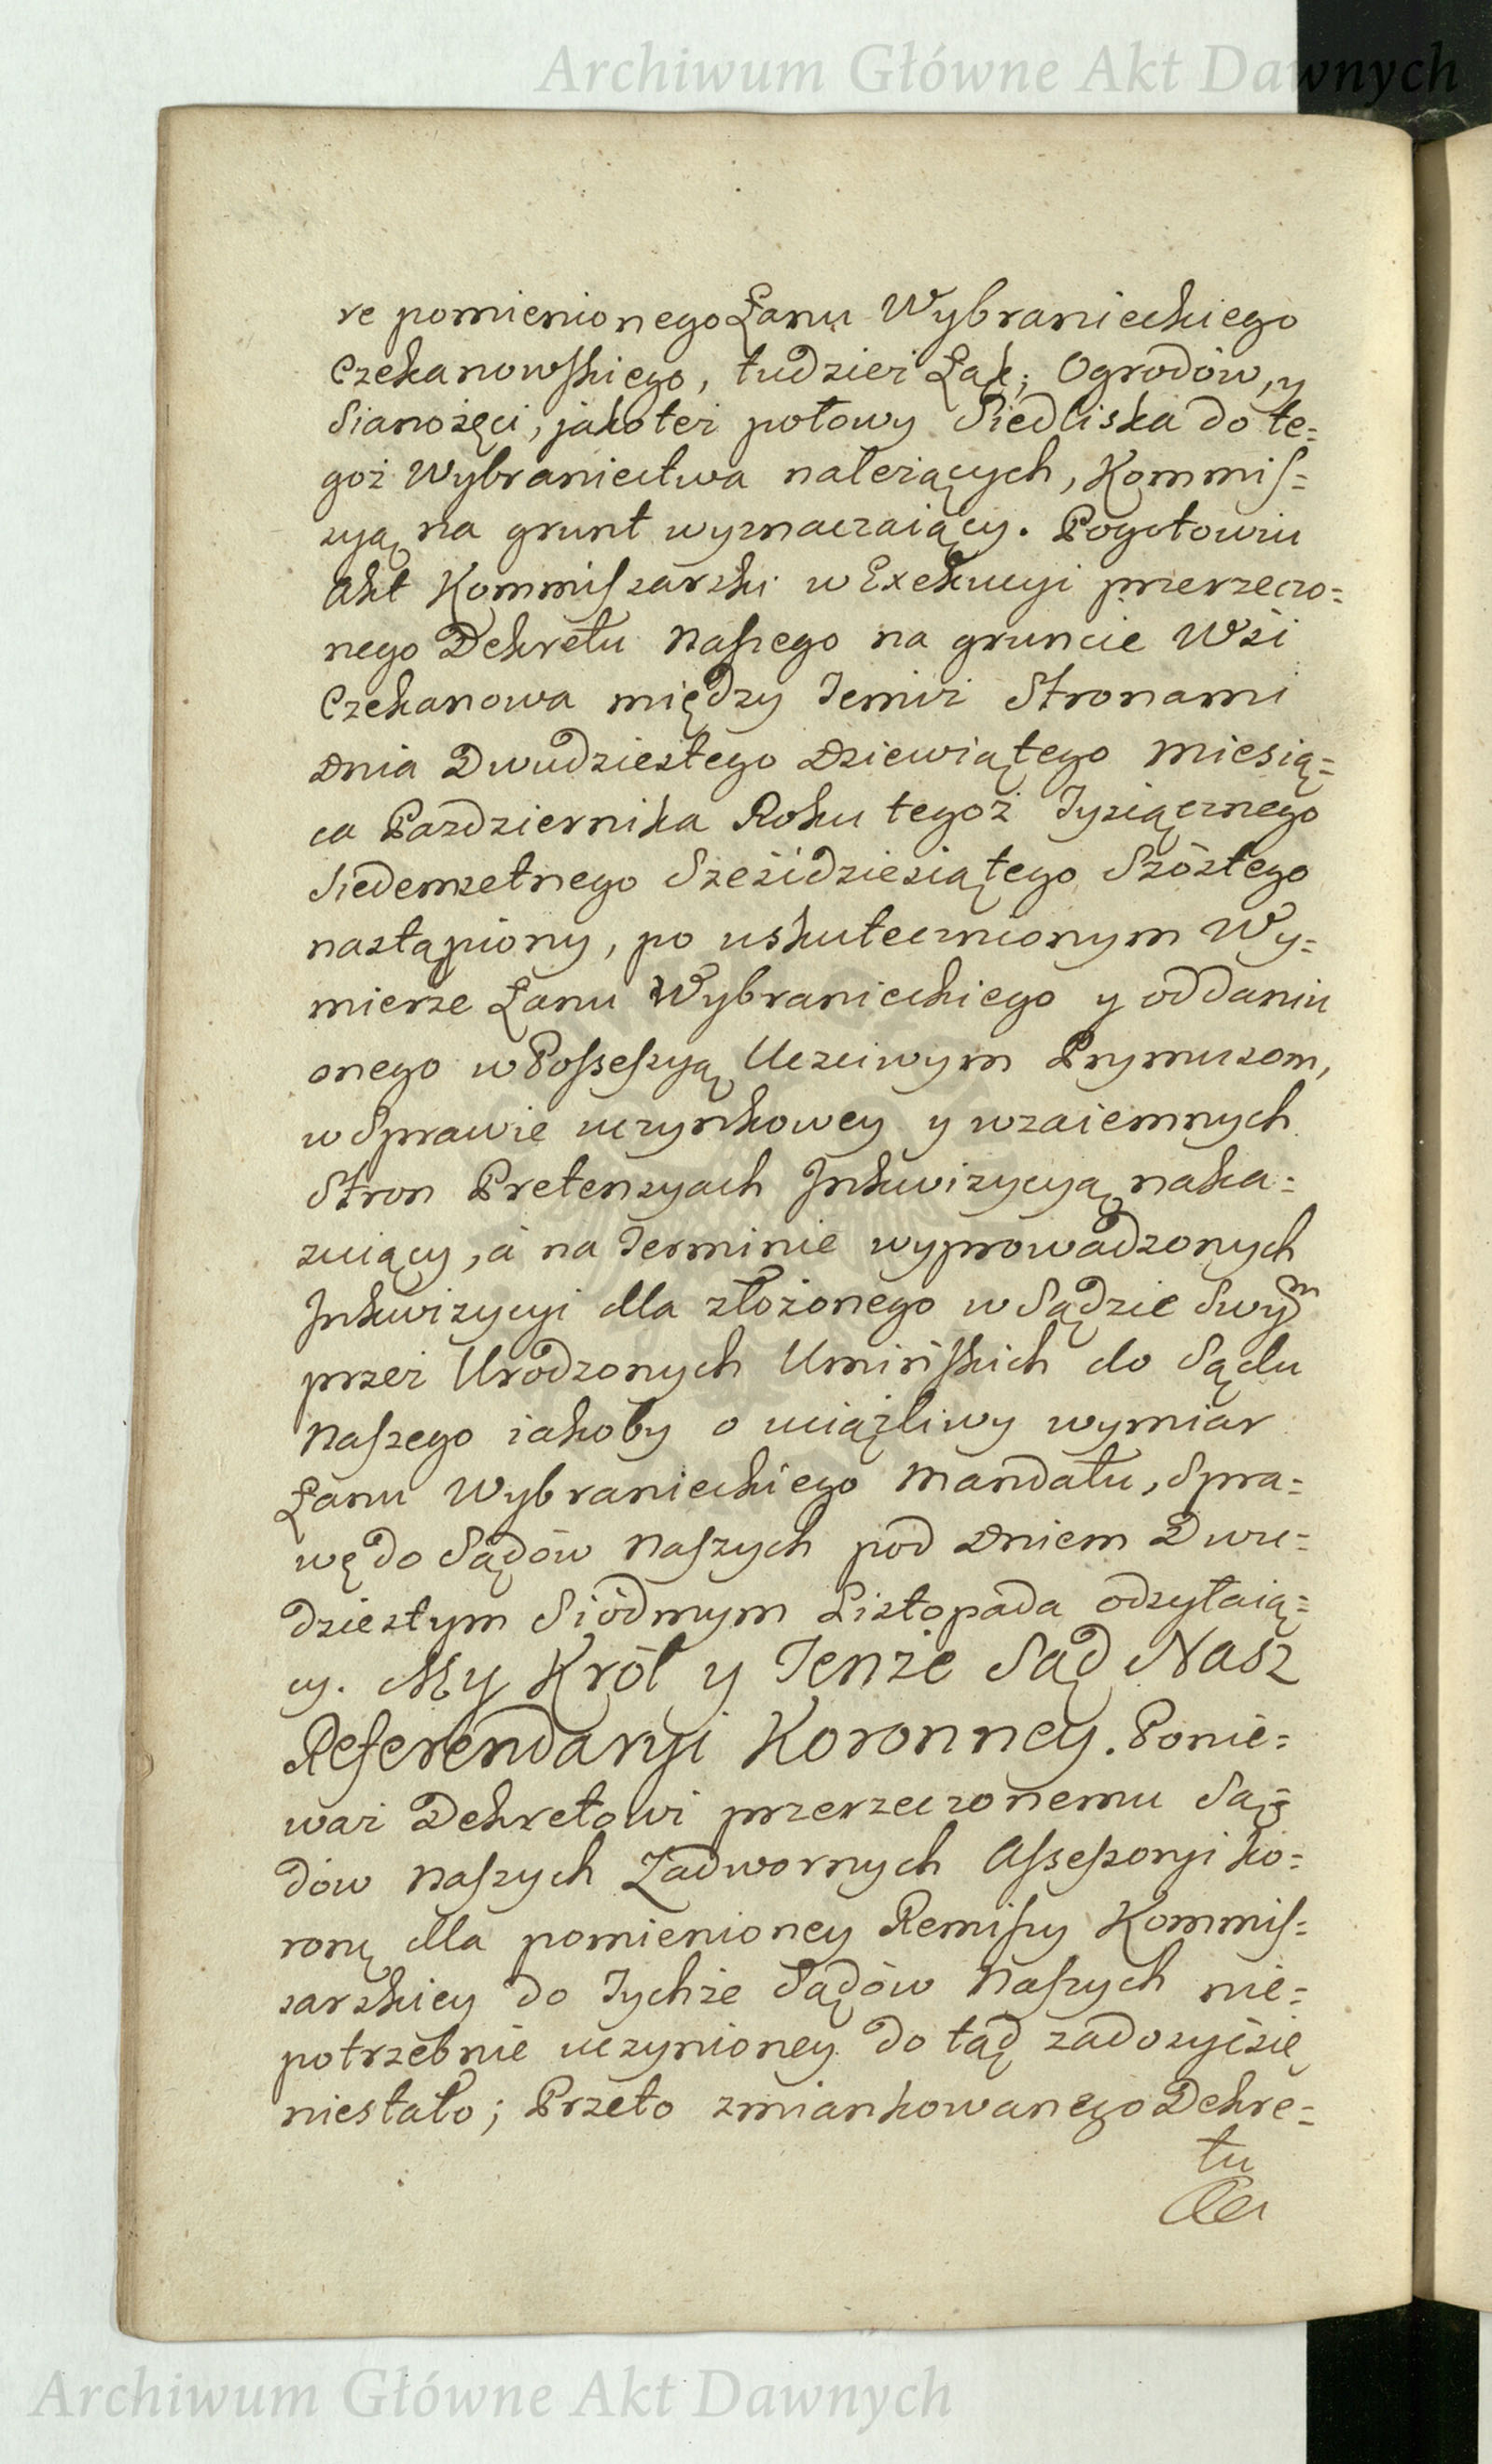 Archiwum Główne Akt Dawnych
re pomienionego Łanu Wybranieckiego
Czekanowskiego, tudzież Łąk, Ogrodów, y
Sianożęci, jakoteż połowy Siedliska do te=
goż Wybraniectwa należących, Kommis=
syą na grunt wyznaczaiący. Pogotowiu
Akt Kommissarski w Exekucyi przerzeczo=
nego Dekretu Naszego na gruncie Wsi
Czekanowa między Temiż Stronami
Dnia Dwudziestego Dziewiątego Miesią=
ca Pazdziernika Roku tegoż Tysiącznego
Siedemsetnego Sześćdziesiątego Szóstego
nastąpiony, po uskutecznionym Wy=
mierze Łanu Wybranieckiego y oddaniu
onego w Possessyą Uczciwym Prymusom,
w Sprawie uczynkowey y wzaiemnych
Stron Pretensyach Inkwizycyą naka=
zuiący, a na Terminie wyprowadzonych
Inkwizycyi dla złożonego w Sądzie Swym
przez Urodzonych Umińskich do Sądu
Naszego iakoby o uciążliwy wymiar
Łanu Wybranieckiego Mandatu, Spra=
wę do Sądów Naszych pod Dniem Dwu=
dziestym Siódmym Listopada odsyłaią=
cy. My Król y Tenże Sąd Nasz
Referendaryi Koronney. Ponie=
waż Dekretowi przerzeczonemu Są=
dów Naszych Zadwornych Assessoryi Ko=
ronę dla pomienioney Remissy Kommis=
sarskiey do Tychże Sądów Naszych nie=
potrzebnie uczynioney do tąd zadosyć się
niestało; Przeto zmiankowanego Dekre=
tu
Archiwum Główne Akt Dawnych